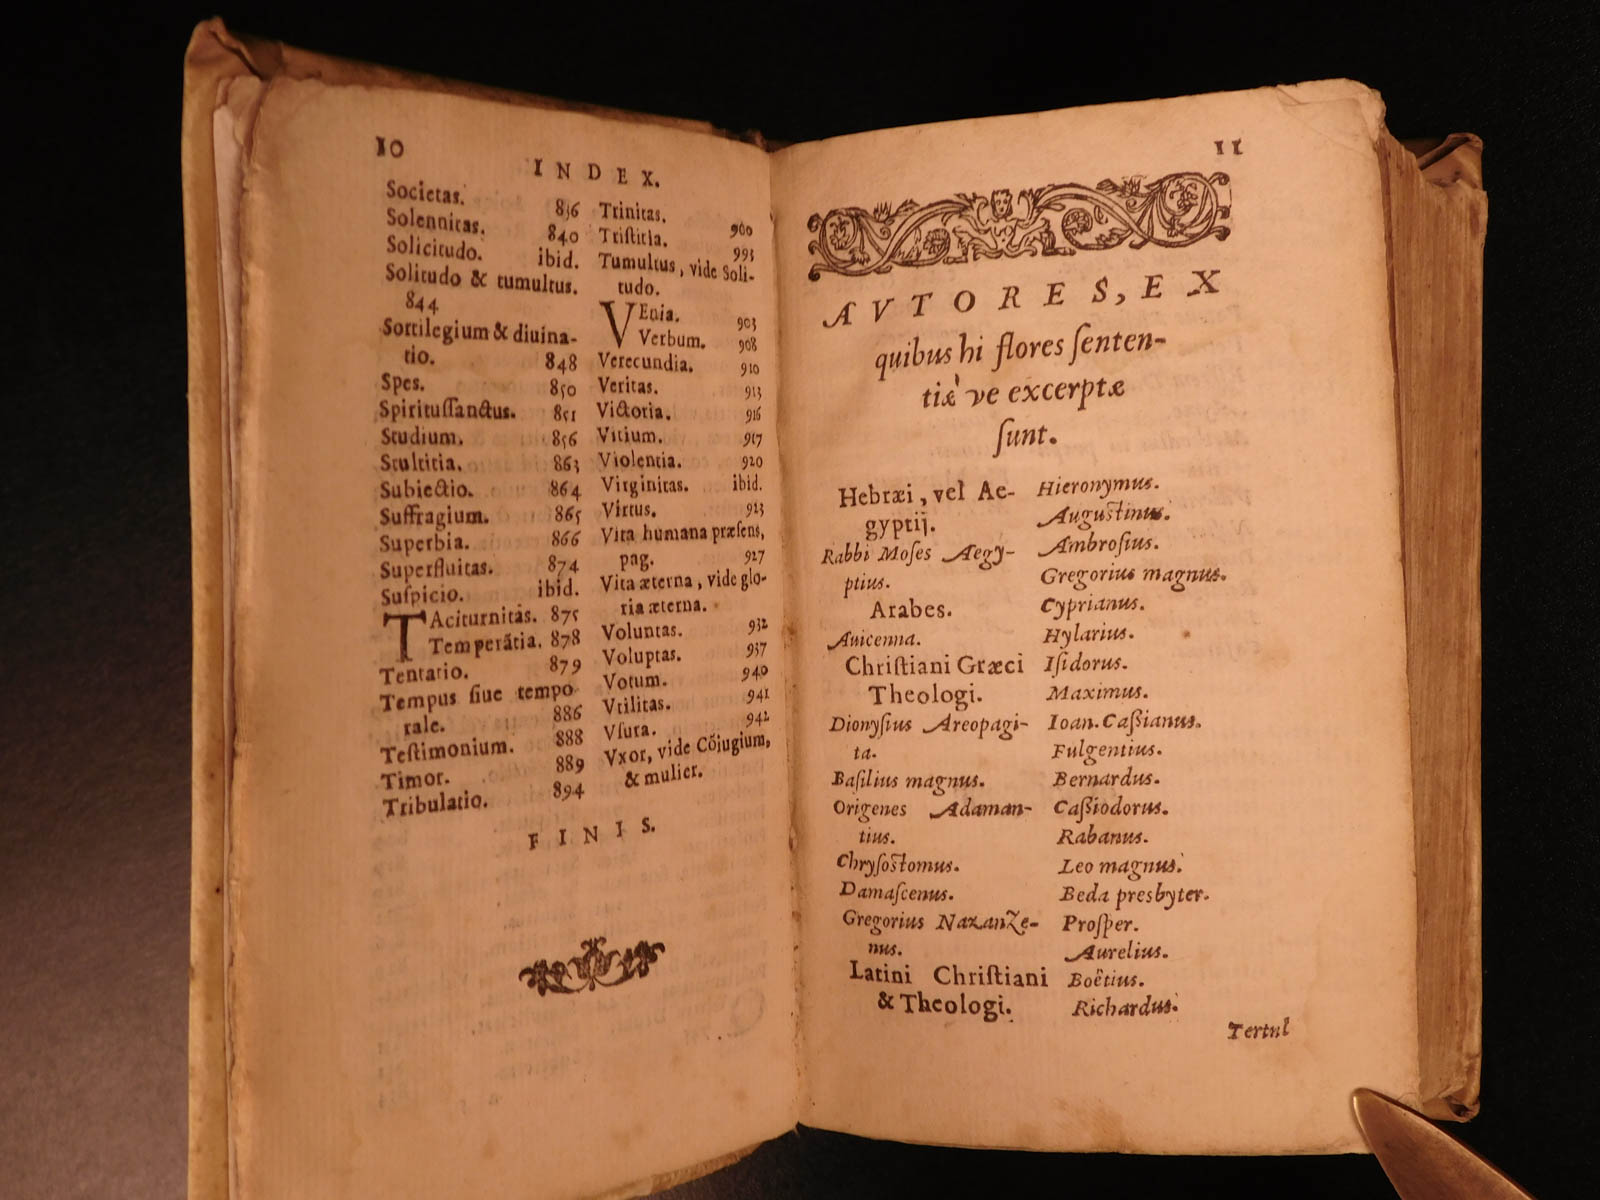 10
INDEX.
Societas. 836
Solennitas. 840
Solicitudo. ibid.
Solitudo & tumultus.
844
Sortilegium & diuina-
tio. 848
Spes. 850
Spiritusſanctus. 851
Studium. 856
Stultitia. 863
Subiectio. 864
Suffragium. 865
Superbia. 866
Superfluitas. 874
Suſpicio. ibid.
TAciturnitas. 875
Temperãtia. 878
Tentatio. 879
Tempus ſiue tempo
rale. 886
Teſtimonium. 888
Timor. 889
Tribulatio. 894
Trinitas. 900
Triſtitia. 993
Tumultus, vide Soli-
tudo.
VEnia. 903
Verbum. 908
Verecundia. 910
Veritas. 913
Victoria. 916
Vitium. 917
Violentia. 920
Virginitas. ibid.
Virtus. 923
Vita humana præſens,
pag. 927
Vita æterna, vide glo-
ria æterna.
Voluntas. 932
Voluptas. 937
Votum. 940
Vtilitas. 941
Vſura. 942
Vxor, vide Cõjugium,
& mulier.
FINIS.
11
AVTORES, EX
quibus hi flores ſenten-
tiæ ve excerptæ
ſunt.
Hebræi, vel Ae-
gyptij.
Rabbi Moſes Aegy-
ptius.
Arabes.
Auicenna.
Chriſtiani Græci
Theologi.
Dionyſius Areopagi-
ta.
Baſilius magnus.
Origenes Adaman-
tius.
Chryſoſtomus.
Damaſcenus.
Gregorius Nazanze-
nus.
Latini Chriſtiani
& Theologi.
Hieronymus.
Auguſtinus.
Ambroſius.
Gregorius magnus.
Cyprianus.
Hylarius.
Iſidorus.
Maximus.
Ioan. Caßianus.
Fulgentius.
Bernardus.
Caßiodorus.
Rabanus.
Leo magnus.
Beda presbyter.
Proſper.
Aurelius.
Boëtius.
Richardus.
Tertul